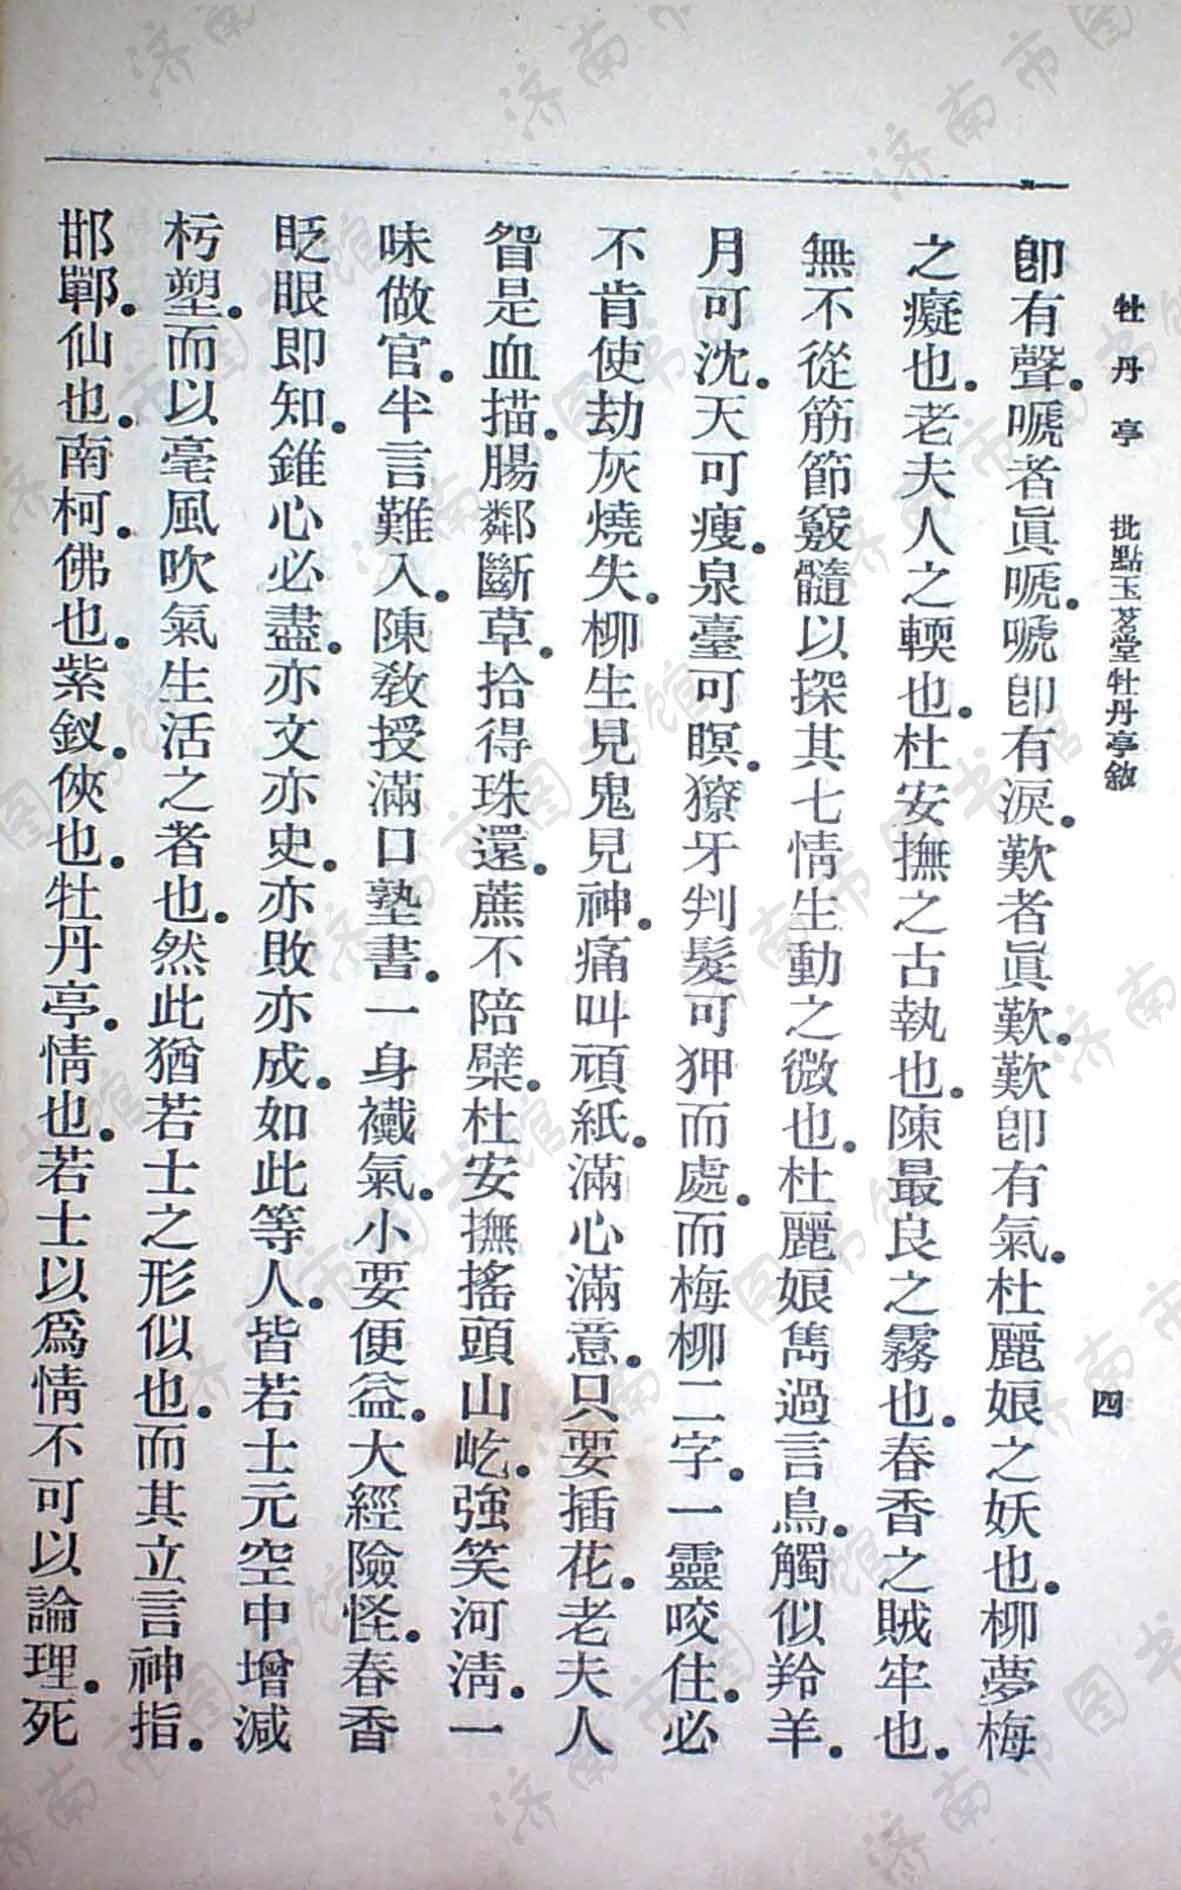 牡丹亭　批點玉茗堂牡丹亭敘　四
卽有聲.唬者眞唬.唬卽有淚.歎者眞歎.歎卽有氣.杜麗娘之妖也.柳夢梅
之癡也.老夫人之輭也.杜安撫之古執也.陳最良之霧也.春香之賊牢也.
無不從筋節竅髓以探其七情生動之微也.杜麗娘雋過言鳥.觸似羚羊.
月可沈.天可瘦.泉臺可瞑.獠牙判髮可狎而處.而梅柳二字.一靈咬住.必
不肯使劫灰燒失.柳生見鬼見神.痛叫頑紙.滿心滿意.只要插花.老夫人
眢是血描.腸鄰斷草.拾得珠還.蔗不陪檗.杜安撫搖頭山屹.強笑河淸.一
味做官.半言難入.陳敎授滿口塾書.一身襶氣.小要便益.大經險怪.春香
眨眼即知.錐心必盡.亦文亦史.亦敗亦成.如此等人.皆若士元空中增減
杇塑.而以毫風吹氣生活之者也.然此猶若士之形似也.而其立言神指.
邯鄲.仙也.南柯.佛也.紫釵.俠也.牡丹亭.情也.若士以爲情不可以論理.死
济南市图书馆